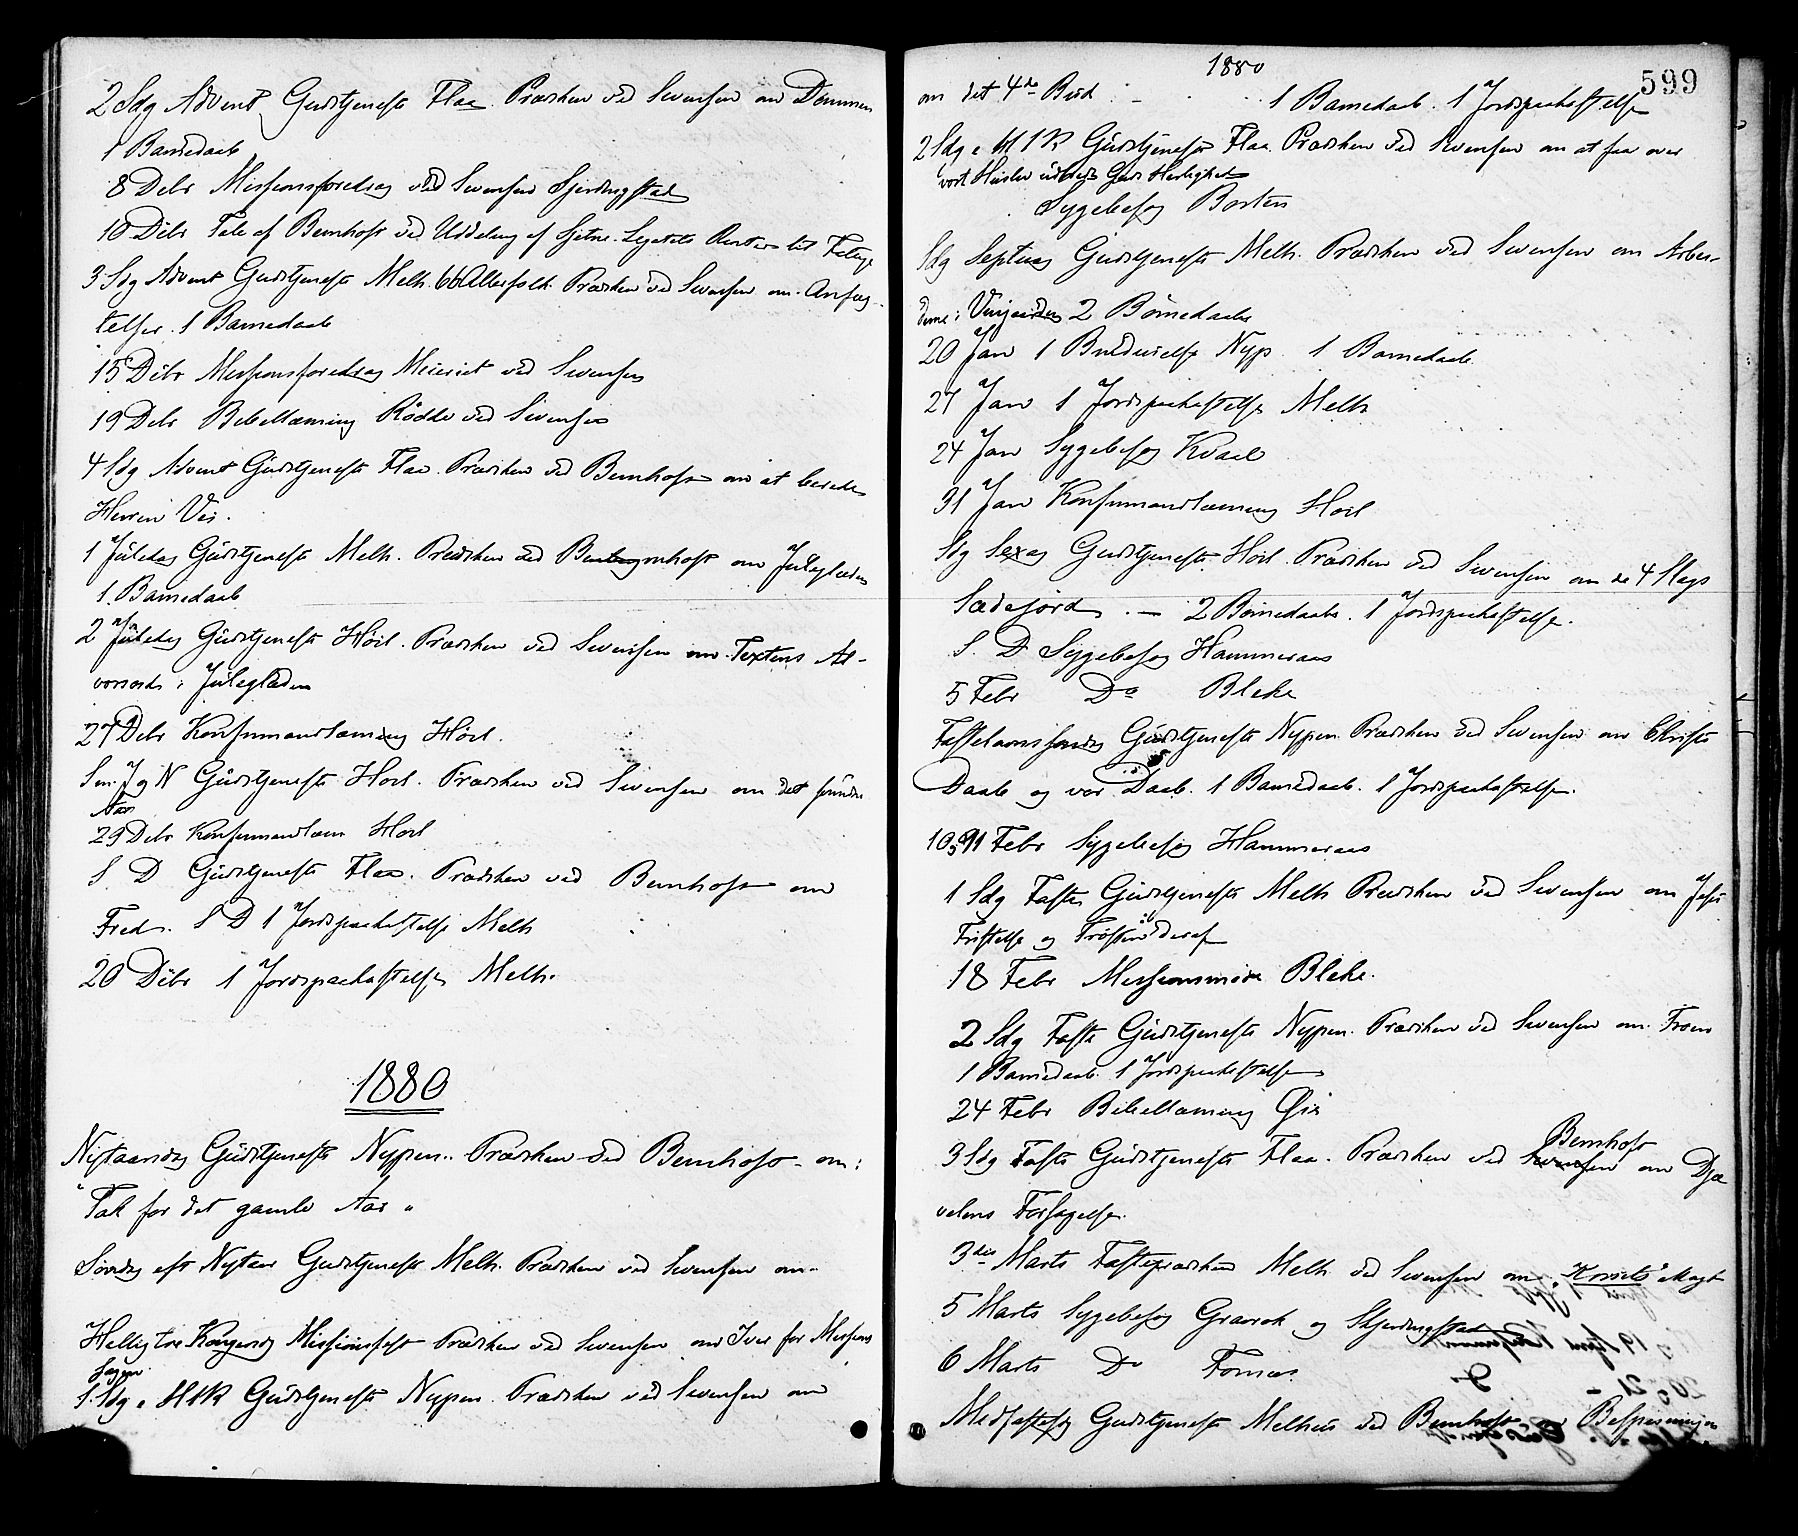 2 Sdg Advent Gudstjeneste Flaa. Præken ved Svensen om Dommen
1 Barnedaab
8 Debr Missionsforedrag ved Svensen Gjerdingstad
10 Debr Tale af Bernhoft ved Uddeling af Gjetne. Legatets Renter til Fattige
3 Sdg Advent Gudstjeneste Melh. 66 Altersfolk. Præken ved Svensen om Anfæg-
telser. 1 Barnedaab
15 Debr Missionsforedrag Meieriet ved Svensen
19 Debr Bibellæsning Rødde ved Svensen
4 Sdg Advent Gudstjeneste Flaa. Præken ved Bernhoft om at berede
Herren Vei.
1 Juledag Gudstjeneste Melh. Præken ved Bernhoft om Juleglæden
1 Barnedaab
2 Juledag Gudstjeneste Höil. Præken ved Svensen om Textens Al-
vorsord i Juleglæden
27 Debr Konfirmandlæsning Höil.
Søn. J og N Gudstjeneste Horl. Præken ved Svensen om det svundne
Aar
29 Debr Konfirmandlæsn Horl
S. D Gudstjeneste Flaa. Præken ved Bernhoft om
Fred. S D 1 Jordpaakastelse Melh
20 Debr 1 Jordpaakastelse Melh.
1880
Nytaarsdag Gudstjeneste Nypen. Præken ved Bernhoft om:
"Tak for det gamle Aar"
Søndag eft Nytaar Gudstjeneste Melh. Præken ved Svensen om
Helligtre Kongersdag Missionsfest Præken ved Svensen om Iver for Missions
Sagen
1. Sdg e H 3 K Gudstjeneste Nypen. Præken ved Svensen om
1880
599
om det 4de Bud - 1 Barnedaab. 1 Jordpaakastelse
2 Sdg e H 3 K Gudstjeneste Flaa. Præken ved Svensen om at faa over
vort Huslev udbredt Guds Herlighed
Sygebesøg Borten
Sdg Septuag Gudstjeneste Melh. Præken ved Svensen om Arbei-
derne i Vingaarden 2 Børnedaabe
20 Jan 1 Brudevielse Nyp. 1 Barnedaab
27 Jan 1 Jordpaakastelse Melh
24 Jan Sygebesøg Kvaal
31 Jan Konfirmandlæsning Horl
Sdg Sexag Gudstjeneste Horl. Præken ved Svensen om de 4 Slags
Sædejord. - 2 Børnedaabe. 1 Jordpaakastelse.
S. D Sygebesøg Hammeraas
5 Febr Do Bleke
Fastelavnssøndag Gudstjeneste Nypen Præken ved Svensen om Christi
Daab og vor Daab. 1 Barnedaab. 1 Jordpaakastelse.
10, 11 Febr Sygebesøg Hammeraas
1 Sdg Faste Gudstjeneste Melh Præken ved Svensen om Jesu
Fristelse og Trösten deraf
18 Febr Missionsmøde Bleke.
2 Sdg Faste Gudstjeneste Nypen. Præken ved Svensen om Troen
1 Barnedaab. 1 Jordpaakastelse
24 Febr Bibellæsning Øie
Bernhoft
3 Sdg Faste Gudstjeneste Flaa. Præken ved Svensen om Djæ
velens Forsagelse.
3die Marts Fastepræken Melh ved Svensen om "Korsets" Magt
5 Marts Sygebesøg Gravrok og Skjerdingstad
6 Marts Do
Midfastesdg Gudstjeneste Melhus ved Bernhoft Bespisningen